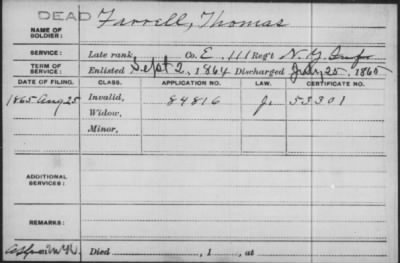 DEAD
NAME OF SOLDIER: Farrell, Thomas
SERVICE: Late rank, Co. E, 111 Reg't N.Y. Inf
TERM OF SERVICE: Enlisted Sept 2, 1864 Discharged 25, 1865
DATE OF FILING. CLASS. APPLICATION NO. LAW. CERTIFICATE NO.
1865 Aug 25 Invalid, 84816 53301
Widow,
Minor,
ADDITIONAL SERVICES:
REMARKS:
Died , 1 , at